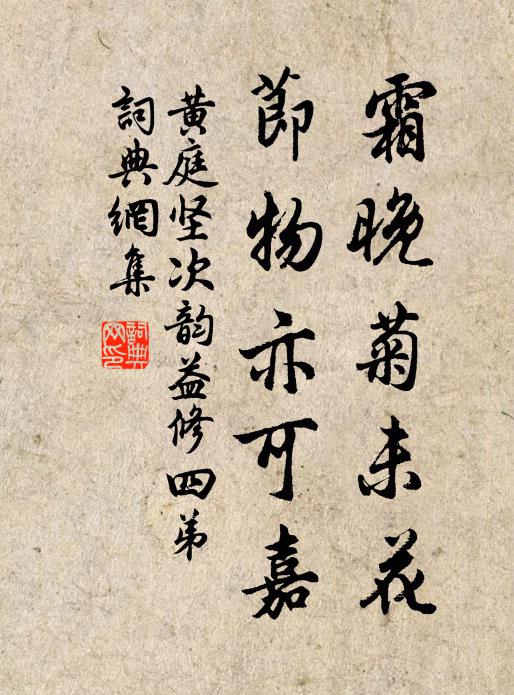 霜晚菊未花
節物亦可嘉
黄庭坚次韵益修四弟
詞典網集
詞典網印